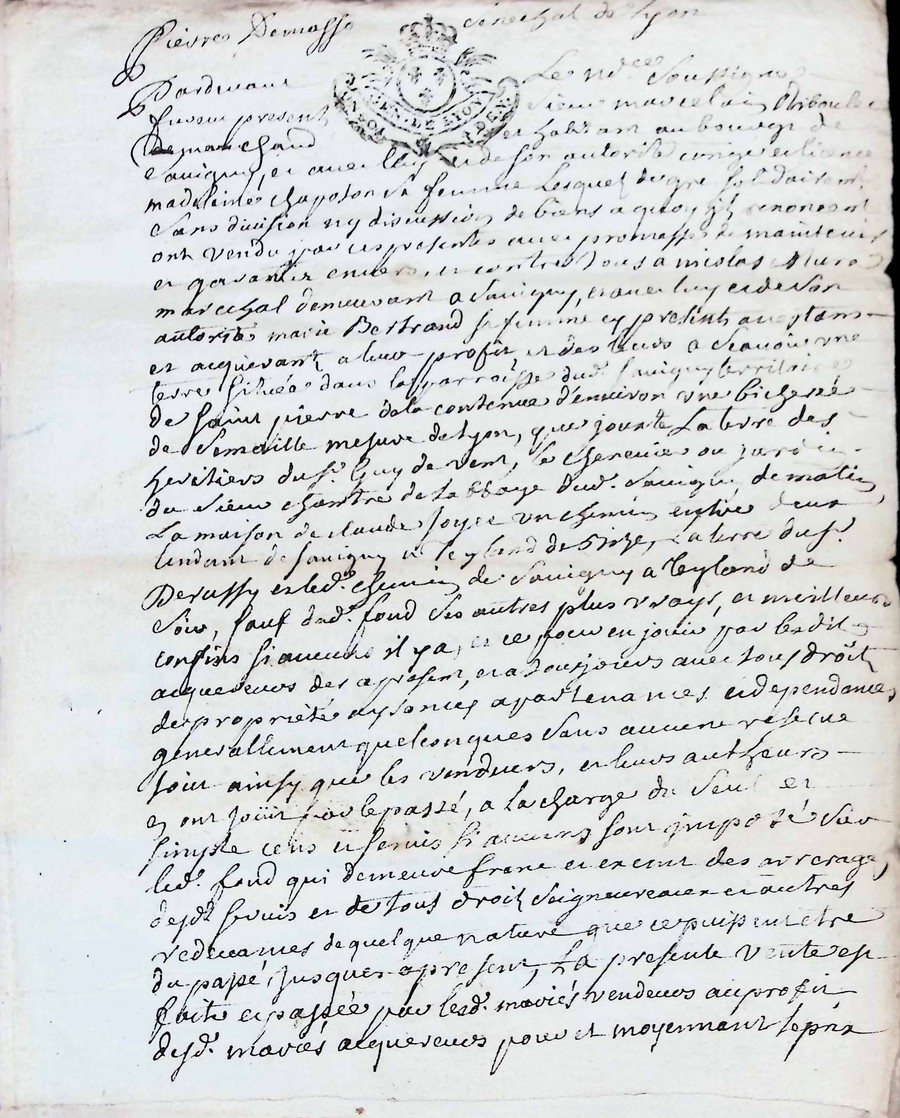 Pierre Demasso sénéchal de Lyon
GEN. DE LYON
Pardevant Le no.re Soussigné
furent present Sieur marcelain
marchand et habitant au bourg de
Savigny, et avec luy et de son autorité congé et licence
madeleine chapolon Sa femme Lesquels de gré solidairement
Sans division ny discussion de biens a quoy ils renoncent
ont vendu par ces presentes avec promesse de maintenir
et garantir envers, et contre tous a nicolas
marechal demeurant a Savigny, et avec luy et de son
autorité marie Bertrand sa femme cy presents acceptans
et acquerant a leur profit et des leurs a Scavoir une
terre Scituée dans la parroisse dud. Savigny territoire
de Saint pierre de la contenue d'environ une bicherée
de Semaille mesure de Lyon, que jouxte La terre des
heritiers du Sr. Guy de vent, le chenevier ou jardin
du Sieur chantre de Labbaye dud. Savigny de matin
La maison de claude Joyet un chemin entre deux
tendant de Savigny a Leyland de bize, La terre du Sr.
Derussy et led. chemin de Savigny a Leyland de
Soir, Sauf dud. fond Ses autres plus vrays, et meilleurs
confins si aucuns il y a, et ce pour en jouir par lesdits
acquereurs des apresent, et a toujours avec tous droits
de proprieté aysances apartenances et dependances
generallement quelconques Sans aucune reserve
tout ainsy que les vendeurs, et leurs autheurs
en ont jouit par le passé, a la charge du Seul et
simple cens et servis si aucuns sont imposé sur
led. fond qui demeure franc et exemt des arrerages
desd. servis et de tous droits Seigneureaux et autres
redevances de quelque nature que ce puissent etre
du passé jusques apresent, La presente vente est
faite et passée par lesd. mariés vendeurs au profit
desd. mariés acquereurs pour et moyennant le prix